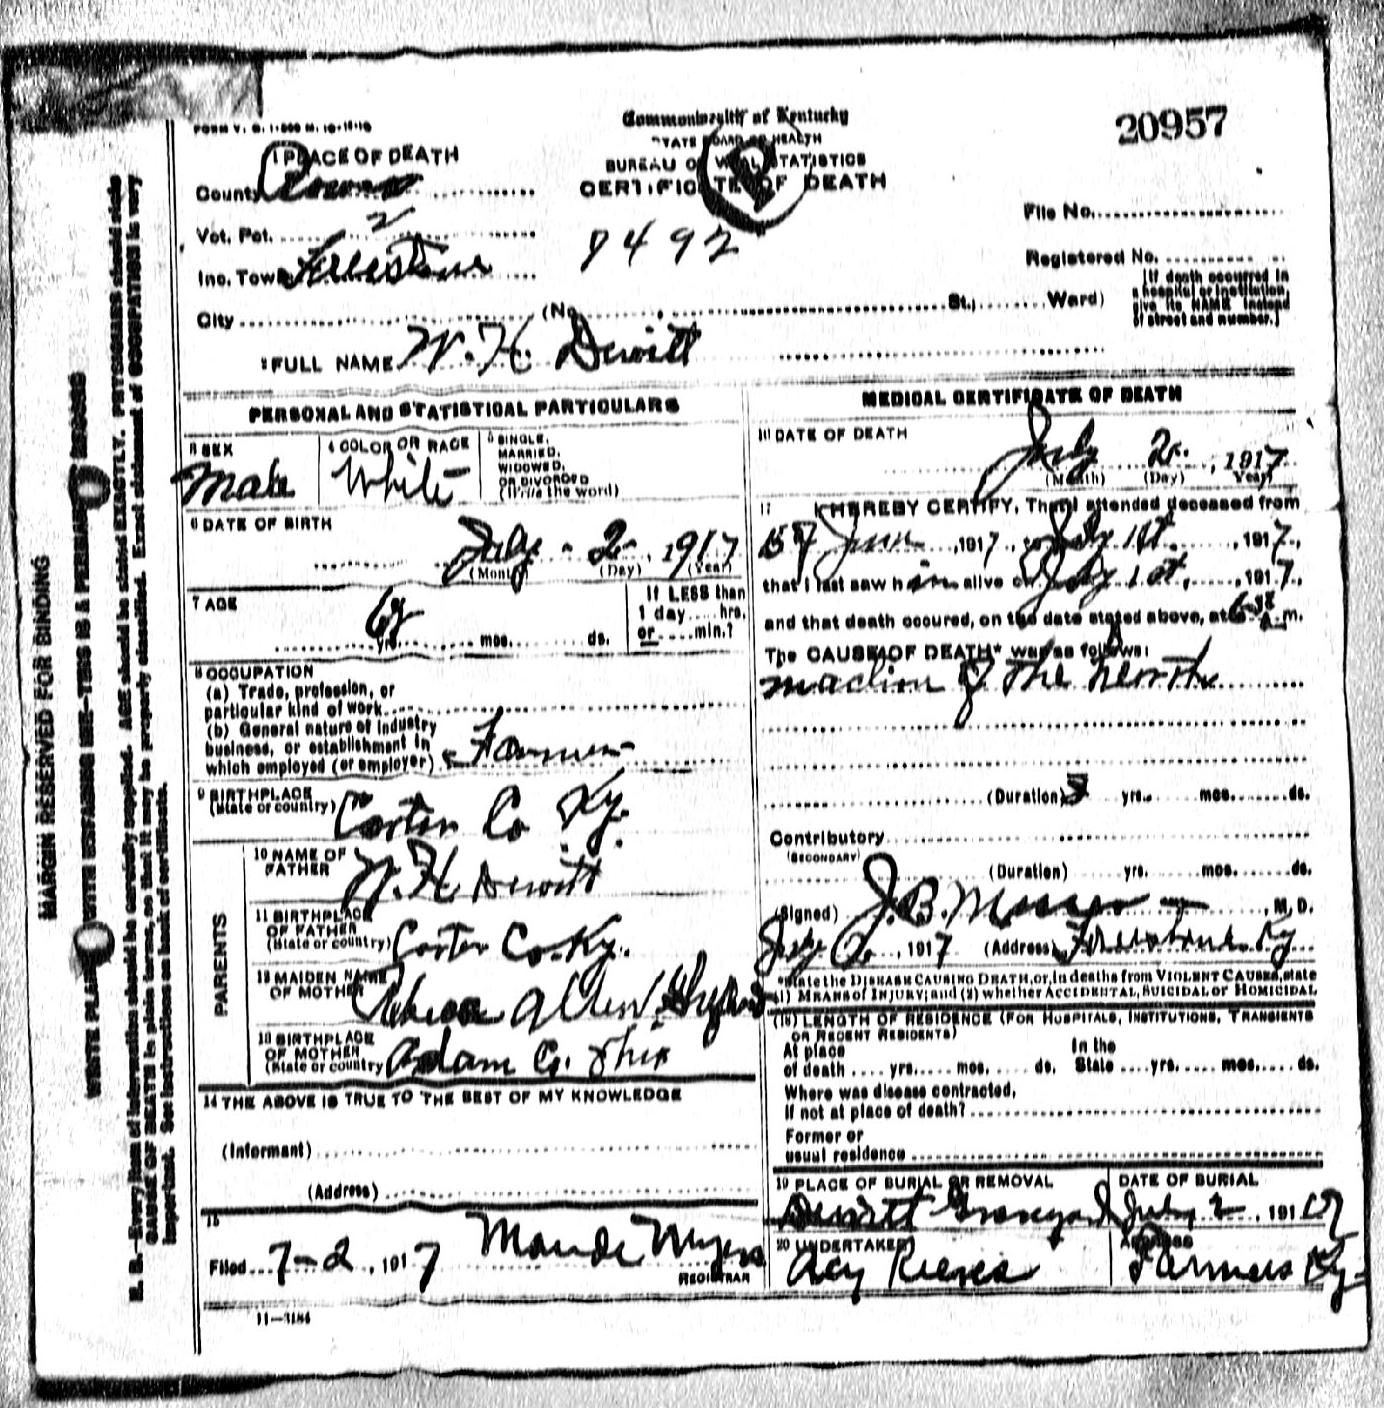 FORM V. S. 1-500 M. 10-15-16
Commonwealth of Kentucky
STATE BOARD OF HEALTH
BUREAU OF VITAL STATISTICS
CERTIFICATE OF DEATH
20957
1 PLACE OF DEATH
County
Vot. Pct. 2
Inc. Town
7492
City (No. St., Ward)
File No.
Registered No.
(If death occurred in
a hospital or institution,
give its NAME instead
of street and number.)
2 FULL NAME W. H. Dewitt
PERSONAL AND STATISTICAL PARTICULARS
3 SEX
Male
4 COLOR OR RACE
White
5 SINGLE,
MARRIED,
WIDOWED,
OR DIVORCED
(Write the word)
6 DATE OF BIRTH
July - 2 , 1917
(Month) (Day) (Year)
7 AGE
yrs. mos. ds.
If LESS than
1 day hrs.
or min.?
8 OCCUPATION
(a) Trade, profession, or
particular kind of work
(b) General nature of industry
business, or establishment in
which employed (or employer) Farmer
9 BIRTHPLACE
(State or country) Carter Co Ky.
PARENTS
10 NAME OF
FATHER W. H. Dewitt
11 BIRTHPLACE
OF FATHER
(State or country) Carter Co. Ky.
12 MAIDEN NAME
OF MOTHER
13 BIRTHPLACE
OF MOTHER
(State or country) Adam G.
14 THE ABOVE IS TRUE TO THE BEST OF MY KNOWLEDGE
(Informant)
(Address)
15
Filed 7-2, 1917 Maude Myers
REGISTRAR
11-3184
MEDICAL CERTIFICATE OF DEATH
16 DATE OF DEATH
July 2 , 1917
(Month) (Day) Year)
17 I HEREBY CERTIFY, That I attended deceased from
June , 1917, to July 1st , 1917,
that I last saw him alive on July 1st, 1917,
and that death occured, on the date stated above, at m.
The CAUSE OF DEATH* was as follows:
of the
(Duration) yrs. mos. ds.
Contributory
(SECONDARY)
(Duration) yrs. mos. ds.
(Signed) J. B. , M. D.
July , 1917 (Address) Ky
*State the DISEASE CAUSING DEATH, or, in deaths from VIOLENT CAUSES, state
(1) MEANS of INJURY; and (2) whether ACCIDENTAL, SUICIDAL or HOMICIDAL
(18) LENGTH OF RESIDENCE (FOR HOSPITALS, INSTITUTIONS, TRANSIENTS
OR RECENT RESIDENTS)
At place In the
of death yrs. mos. ds. State yrs. mos. ds.
Where was disease contracted,
if not at place of death?
Former or
usual residence
19 PLACE OF BURIAL OR REMOVAL
Dewitt Graveyard
DATE OF BURIAL
July 2 , 1917
20 UNDERTAKER
ADDRESS
Farmers Ky
MARGIN RESERVED FOR BINDING
WRITE PLAINLY WITH UNFADING INK—THIS IS A PERMANENT RECORD
N. B.—Every item of information should be carefully supplied. AGE should be stated EXACTLY. PHYSICIANS should state
CAUSE OF DEATH in plain terms, so that it may be properly classified. Exact statement of OCCUPATION is very
important. See instructions on back of certificate.